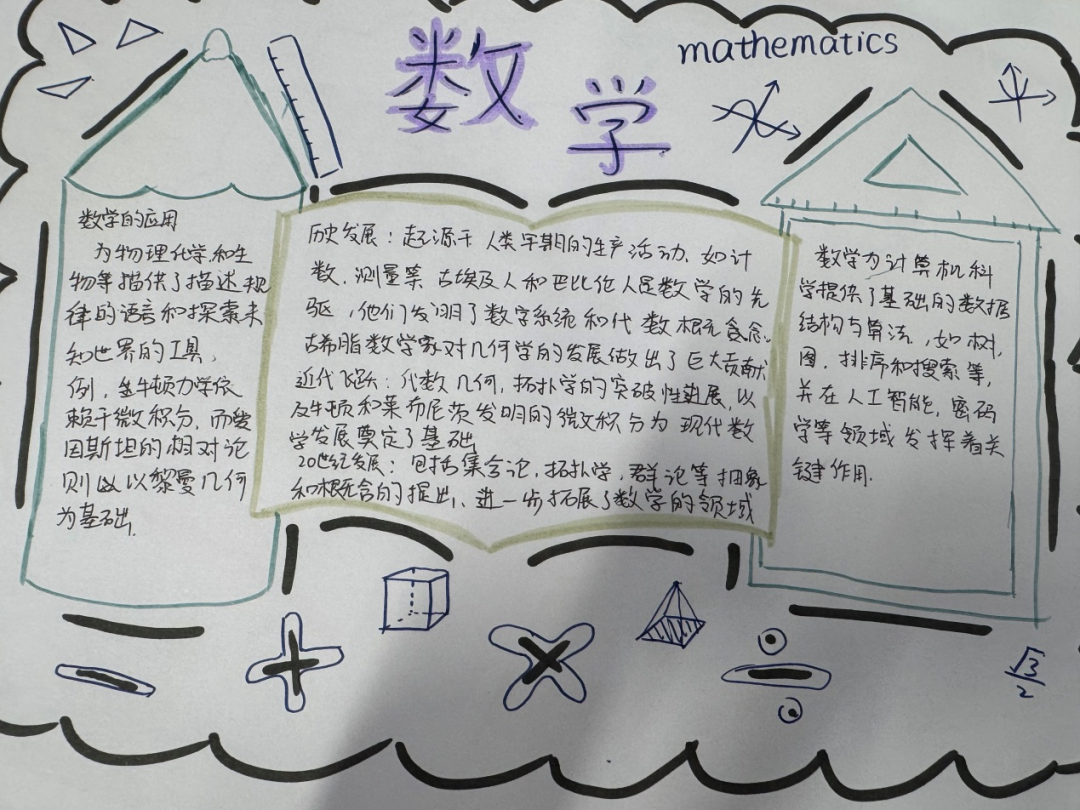 数学
mathematics
数学的应用
为物理化学和生
物等提供了描述规
律的语言和探索未
知世界的工具,
例,牛顿力学依
赖于微积分,而爱
因斯坦的相对论
则以黎曼几何
为基础.
历史发展:起源于人类早期的生产活动,如计
数,测量等.古埃及人和巴比伦人是数学的先
驱,他们发明了数字系统和代数概念.
古希腊数学家对几何学的发展做出了巨大贡献
近代飞跃:代数几何,拓扑学的突破性进展,以
及牛顿和莱布尼茨发明的微积分为现代数
学发展奠定了基础
20世纪发展:包括集合论,拓扑学,群论等抽象
和概念的提出,进一步拓展了数学的领域
数学为计算机科
学提供了基础的数据
结构与算法,如树,
图,排序和搜索等,
并在人工智能,密码
学等领域发挥着关
键作用.
√3
2